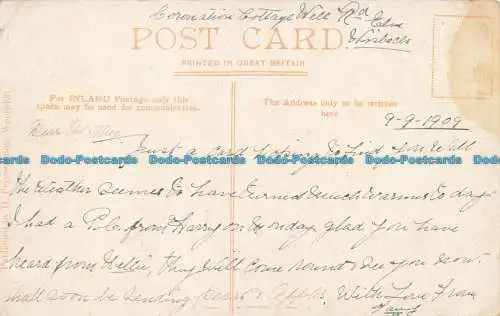 Coronation Cottage Well Rd Elm
Wisbech
POST CARD.
PRINTED IN GREAT BRITAIN
For INLAND Postage only this
space may be used for communication.
The Address only to be written
here
9-9-1909
Dear
Just a card hoping to find you Well
Dodo-Postcards Dodo-Postcards Dodo-Postcards Dodo-Postcards Dodo-Postcards Dodo-Postcards
The Weather seems to have turned much warmer to day
I had a P.C. from Harry on Monday glad you have
heard from Nellie, they Will come round & see you now.
shall soon be sending Pears & Apples, With Love From
Fanny